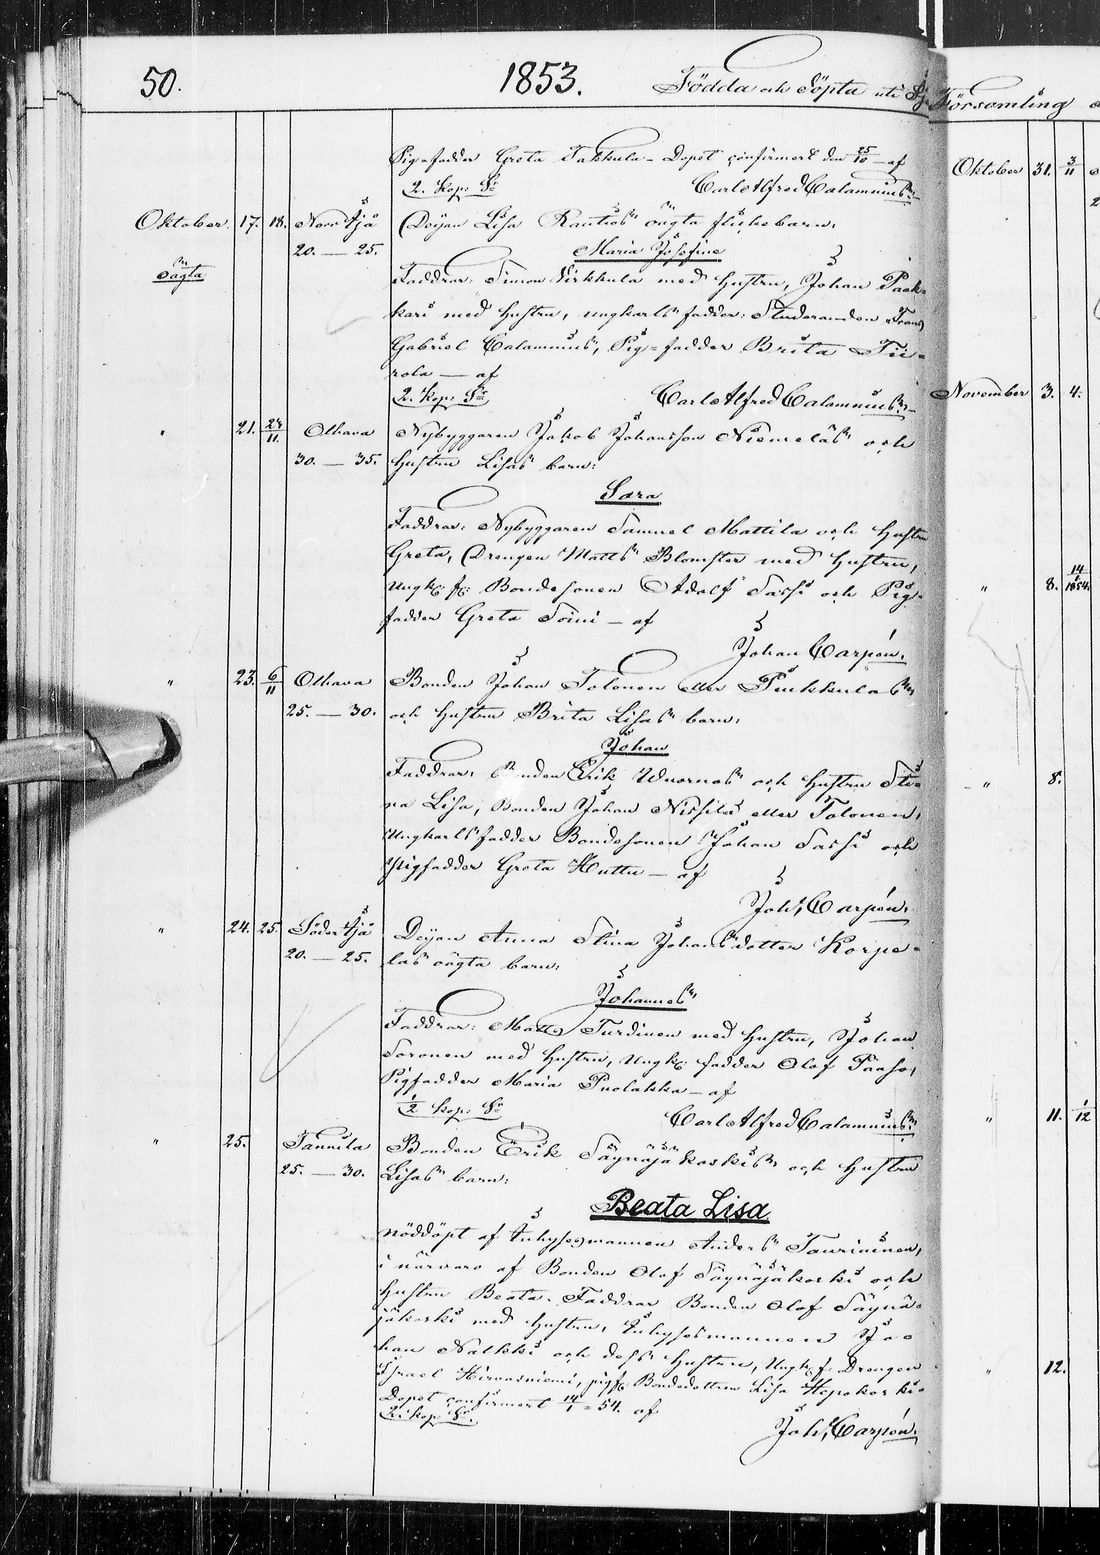 50.
1853.
Födda och Döpta uti
Församling
Pig-fadder Greta Takkula - Dopet confirmert den 25/10 - af
2. Kop: Sr
Carl Alfred Calamnius
Oktober 17. 18. Norr Ijå
Deijan Lisa oägta flickebarn:
20. — 25.
Maria Josefine
oägta
Faddrar: Simon Virkkula med hustru, Johan Paak-
kari med hustru, ungkarls fadder: Studeranden Frans
Gabriel Calamnius, Pig-fadder Brita Tii-
rola — af
2. Kop: Sr
Carl Alfred Calamnius
21. Olhava
Nybyggaren Jakob Johansson Niemeläs och
30. — 35.
hustru Lisas barn:
Sara
Faddrar: Nybyggaren Samuel Mattila och hustru
Greta, Drengen Matts Blomster med hustru,
Ungk. f. Bondesonen Adolf Sassi och Pig-
fadder Greta Soini — af
Johan Carpén.
" 23. 6/11 Olhava
Bonden Johan Tolonen eller Pukkulas
25. — 30.
och hustru Brita Lisas barn:
Johan
Faddrar: Bonden Erik och hustru Sti-
na Lisa, Bonden Johan Nissilä eller Tolonen,
Ungkarls fadder Bondesonen Johan Sassi och
Pigfadder Greta Huttu — af
Joh. Carpén.
" 24. 25. Söder Ijå
Deijan Anna Stina Johansdotter Korpe-
20. — 25.
las oägta barn:
Johannes
Faddrar: Matts Turdinen med hustru, Johan
Soronen med hustru, Ungk. fadder Olof Paaso,
Pigfadder Maria Puolakka — af
1/2 Kop: Sr
Carl Alfred Calamnius
" 25. Tannila
Bonden Erik Säynäjäkoskis och hustru
25. — 30.
Lisas barn:
Beata Lisa
nöddöpt af Inhysesmannen Anders Tauriainen,
i närvaro af Bonden Olof Säynäjäkoski och
hustru Beata. Faddrar Bonden Olof Säynä-
jäkoski med hustru, Inhysesmannen Jo-
han Nalkki och dess hustru, Ungk. f. Drengen
Israel Hirvasniemi, pigf. Bondedottren Lisa Hepokoski.
Dopet confirmert 14/1 54. af
2. Kop: Sr.
Joh. Carpén.
Oktober 31. 3/11
November 3. 4.
" 8. 14/1 1854.
" 8.
" 11. 1/12
" 12.